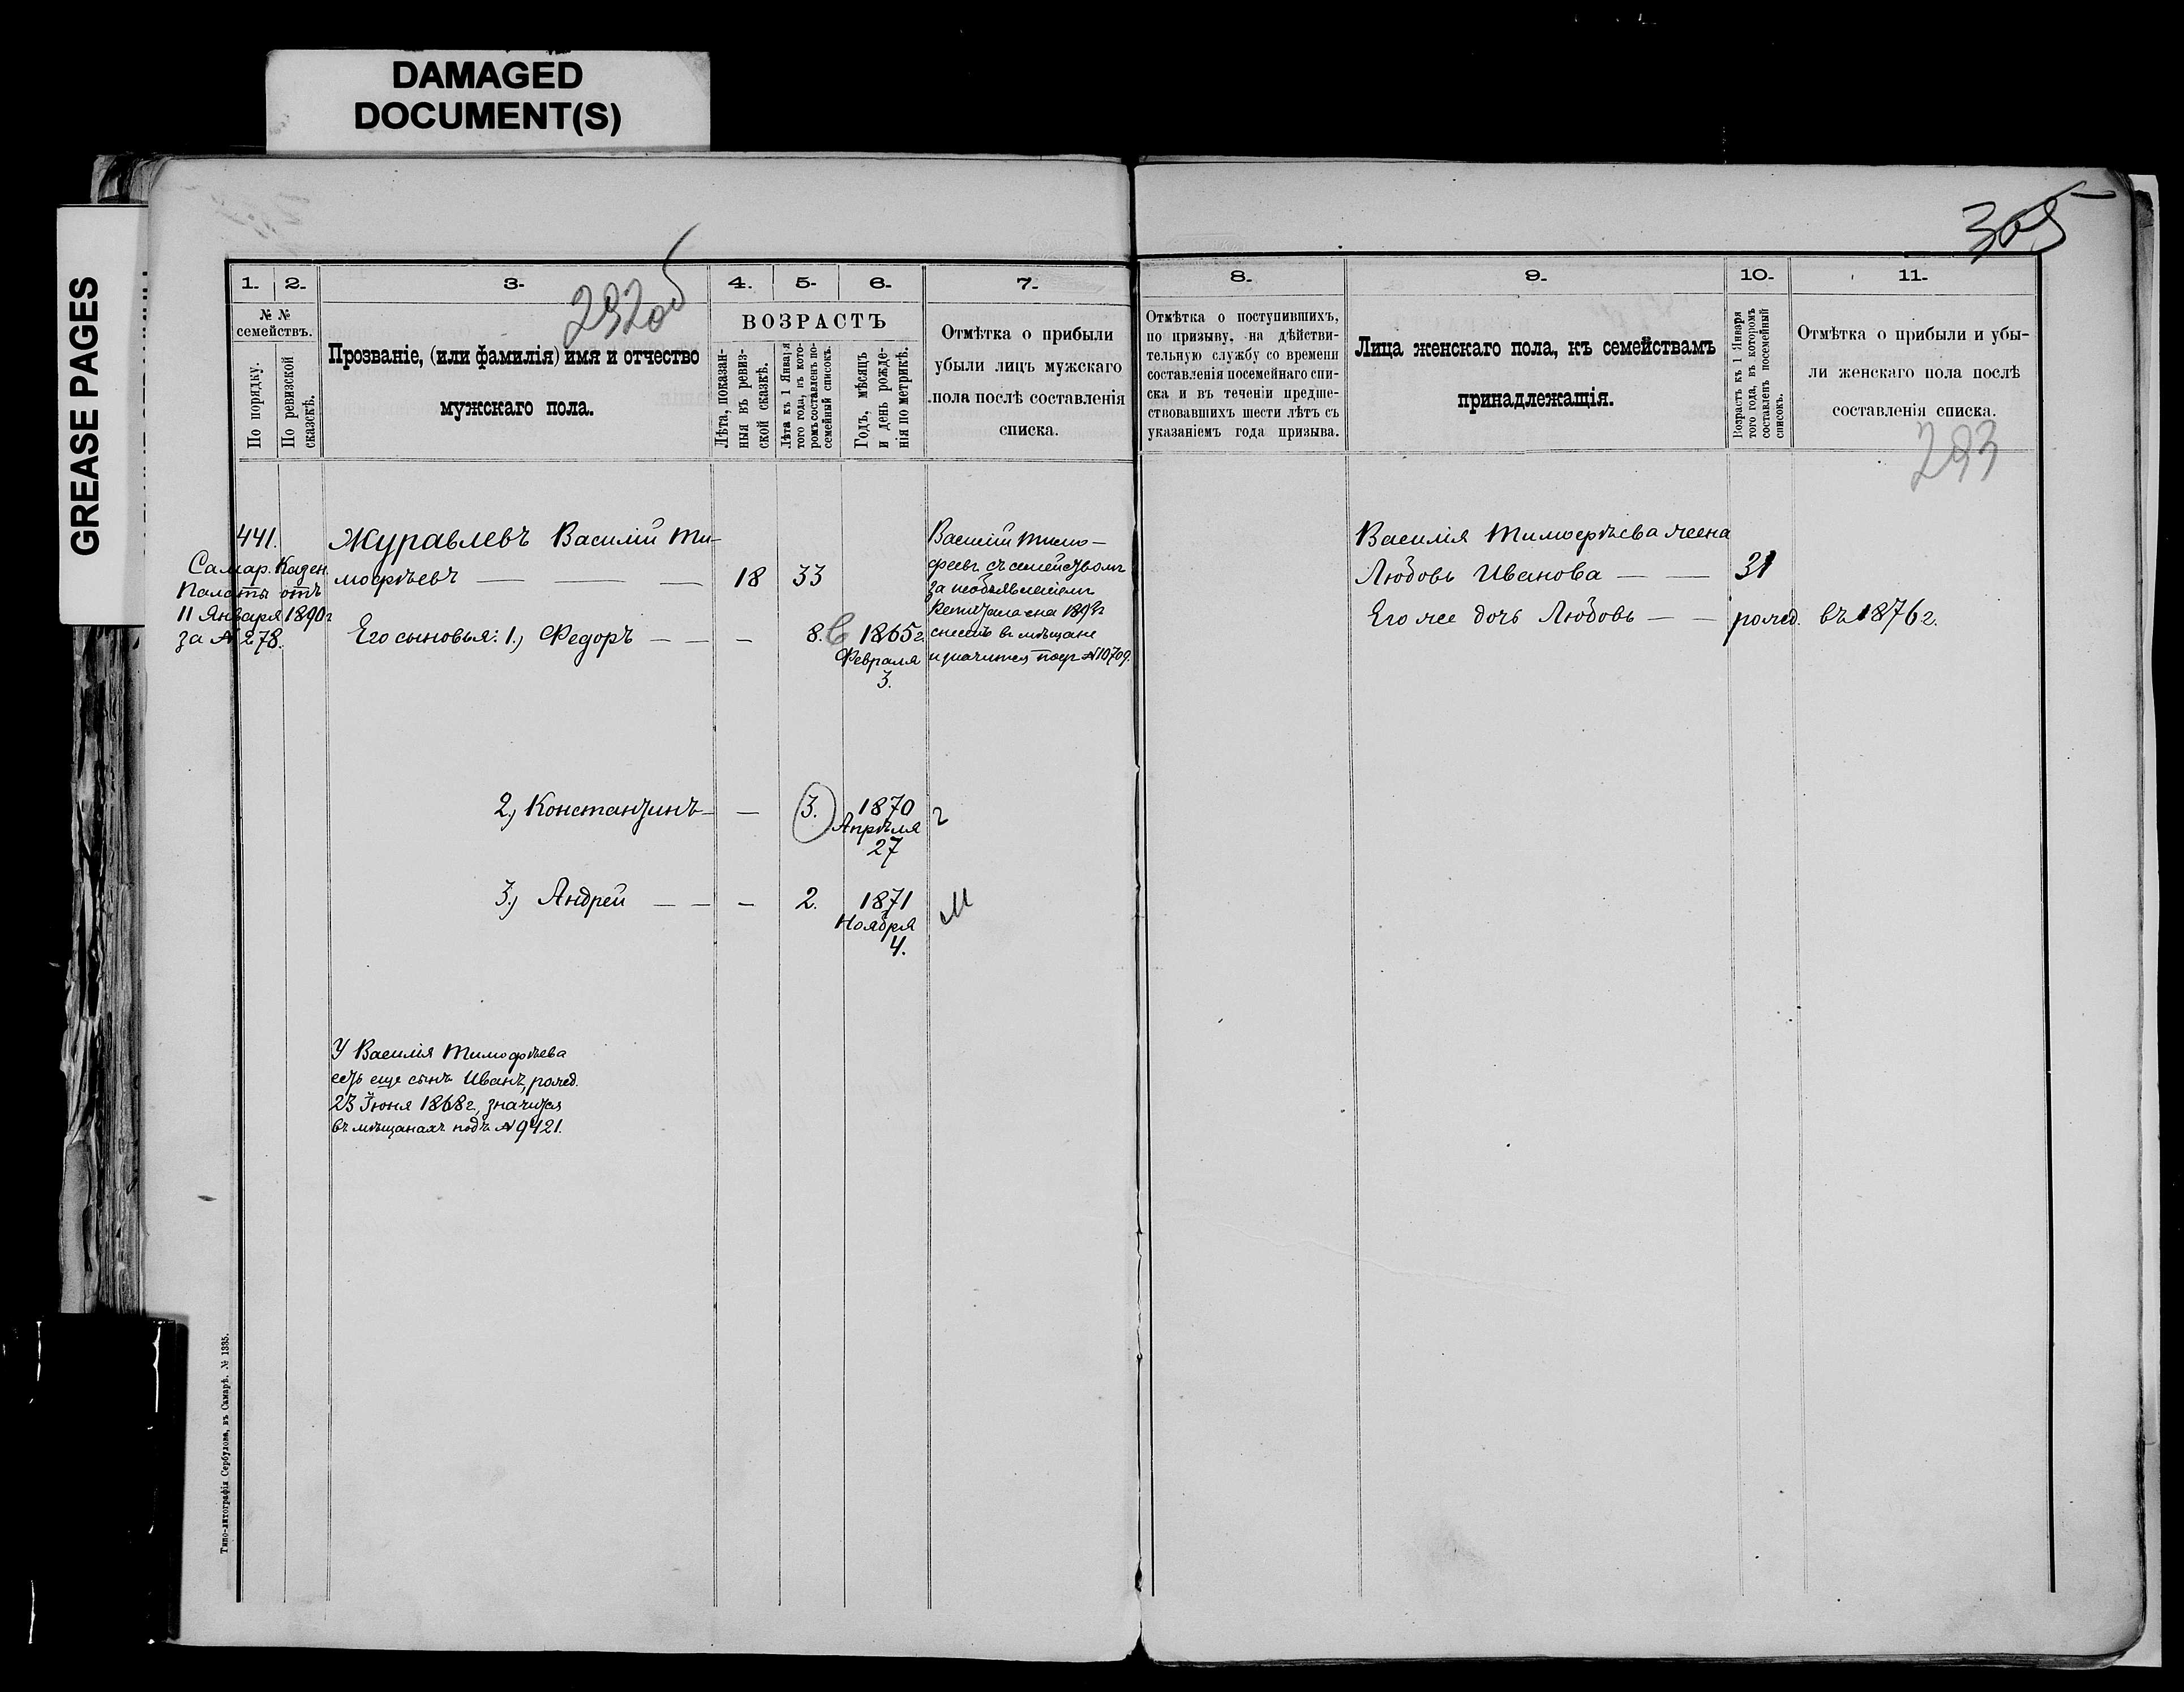 DAMAGED
DOCUMENT(S)
GREASE PAGES
305
292об
1. 2. 3. 4. 5. 6. 7.
№ №
семействъ.
По порядку.
По ревизской
сказскѣ.
Прозваніе, (или фамилія) имя и отчество
мужскаго пола.
ВОЗРАСТЪ
Лѣта, показан-
ныя въ ревиз-
ской сказкѣ.
Лѣта къ 1 Января
того года, въ кото-
ромъ составленъ по-
семейный списокъ.
Годъ, мѣсяцъ
и день рожде-
нія по метрикѣ.
Отмѣтка о прибыли
убыли лицъ мужскаго
пола послѣ составленія
списка.
8. 9. 10. 11.
Отмѣтка о поступившихъ,
по призыву, на дѣйстви-
тельную службу со времени
составленія посемейнаго спи-
ска и въ теченіи предше-
ствовавшихъ шести лѣтъ съ
указаніемъ года призыва.
Лица женскаго пола, къ семействамъ
принадлежащія.
Возрастъ къ 1 Января
того года, въ которомъ
составленъ посемейный
списокъ.
Отмѣтка о прибыли и убы-
ли женскаго пола послѣ
составленія списка.
293
441.
Самар. Казен.
Палаты отъ
11 Января 1890г
за № 278.
Журавлевъ Василій Ти-
мофѣевъ — — — 18 33
Его сыновья: 1.) Федоръ — — — 8. 1865г.
Февраля
3.
Василій Тимо-
феевъ съ семействомъ
за
въ мѣщане
и значится № 10709.
2.) Константинъ — — 3. 1870
Апрѣля
27
3.) Андрей — — — 2. 1871
Ноября
4.
М
У Василія Тимофѣева
есть еще сынъ Иванъ, рожд.
23 Іюня 1868г., значится
въ мѣщанахъ подъ № 9421.
Василія Тимофѣева жена
Любовь Иванова — — 31
Его же дочь Любовь — — рожд. въ 1876г.
Типо-литографія Сербулова, въ Самарѣ. № 1335.